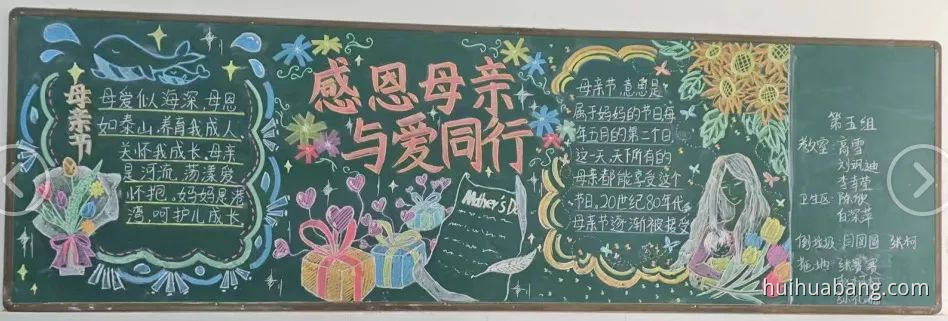 母亲节
母爱似海深,母恩
如泰山,养育我成人,
关怀我成长,母亲
是河流,荡漾爱
怀抱,妈妈是港
湾,呵护儿成长
感恩母亲
与爱同行
Mother's Da
母亲节,意思是
属于妈妈的节日,每
年五月的第二个日,
这一天,天下所有的
母亲都能享受这个
节日,20世纪80年代,
母亲节逐渐被接受
第五组
教室:高雪
卫生区:陈
倒垃圾:闫圆圆 张柯
拖地:张
huihuabang.com